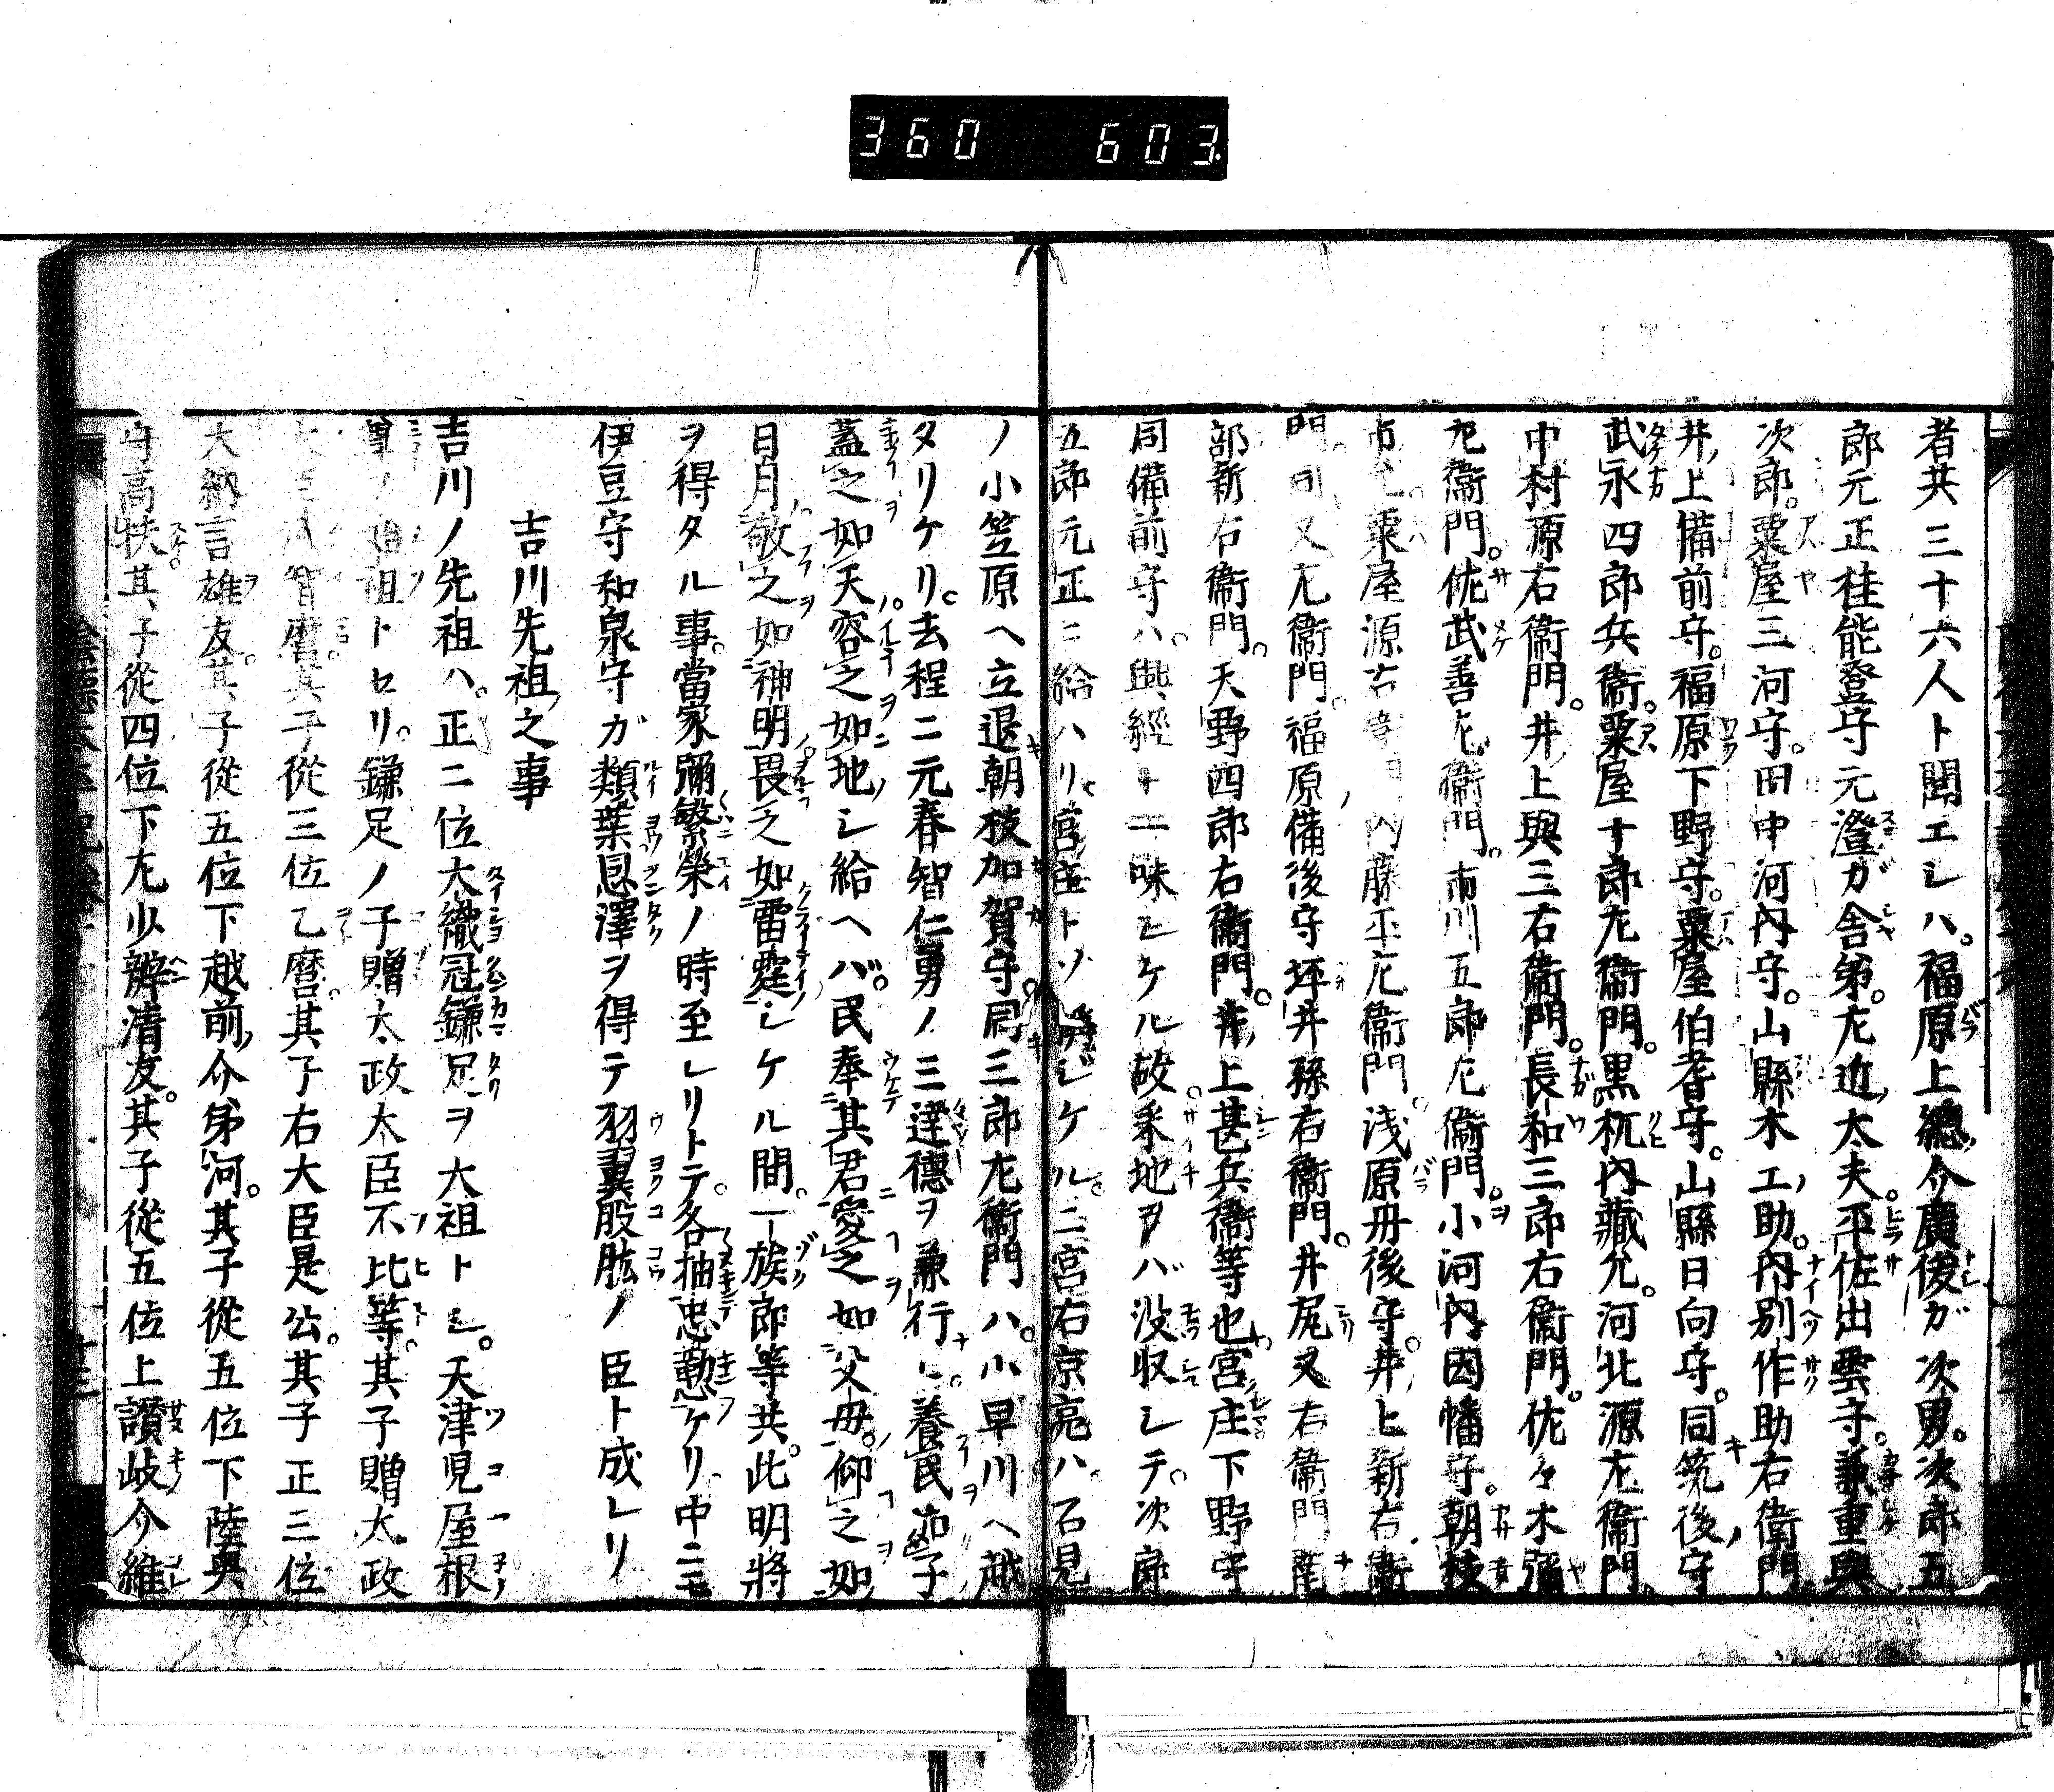 360 603
者共三十六人ト聞エシハ。福原上總介廣俊ガ次男。次郎五
郎元正桂能登守元澄ガ舎弟。左近大夫。平佐出雲守。兼重與
次郎。粟屋三河守。田中河内守。山縣木工助。内別作助右衛門
井上備前守。福原下野守。粟屋伯耆守。山縣日向守。同筑後守
武永四郎兵衛。粟屋十郎左衛門。黒杭内藏允。河北源左衛門。
中村源右衛門。井上與三右衛門。長和三郎右衛門。佐々木彌
左衛門。佐武善左衛門。市川五郎左衛門。小河内因幡守。朝枝
市 粟屋源右衛門内藤平左衛門。浅原丹後守。井上新右衛
門。同又左衛門。福原備後守坪井孫右衛門。井尻又右衛門
部新右衛門。天野四郎右衛門。井上甚兵衛等也宮庄下野守
同備前守ハ。興經ト一味シケル故采地ヲバ没収シテ。次郎
五郎元正ニ給ハリ。宮庄トソ号シケル。二宮右京亮ハ。石見
ノ小笠原ヘ立退朝枝加賀守。同三郎左衛門ハ。小早川ヘ越
タリケリ。去程ニ元春智仁勇ノ三達德ヲ兼行ヒ。養民如子
蓋之如天容之如地シ給ヘバ。民奉其君愛之如父母。仰之如
日月敬之如神明畏之如雷霆シケル間。一族郎等共。此明將
ヲ得タル事。當家彌繁榮ノ時至レリトテ。各抽忠懃ケリ中ニモ
伊豆守和泉守ガ類葉恩澤ヲ得テ羽翼股肱ノ臣ト成レリ
吉川先祖之事
吉川ノ先祖ハ。正二位大織冠鎌足ヲ大祖トシ。天津兒屋根
尊ヲ始祖トセリ。鎌足ノ子贈太政大臣不比等。其子贈太政
大臣武智麿。其子從三位乙麿。其子右大臣是公。其子正三位
大納言雄友。其子從五位下越前介弟河。其子從五位下陸奥
守高扶。其子從四位下左少辨清友。其子從五位上讃岐介維